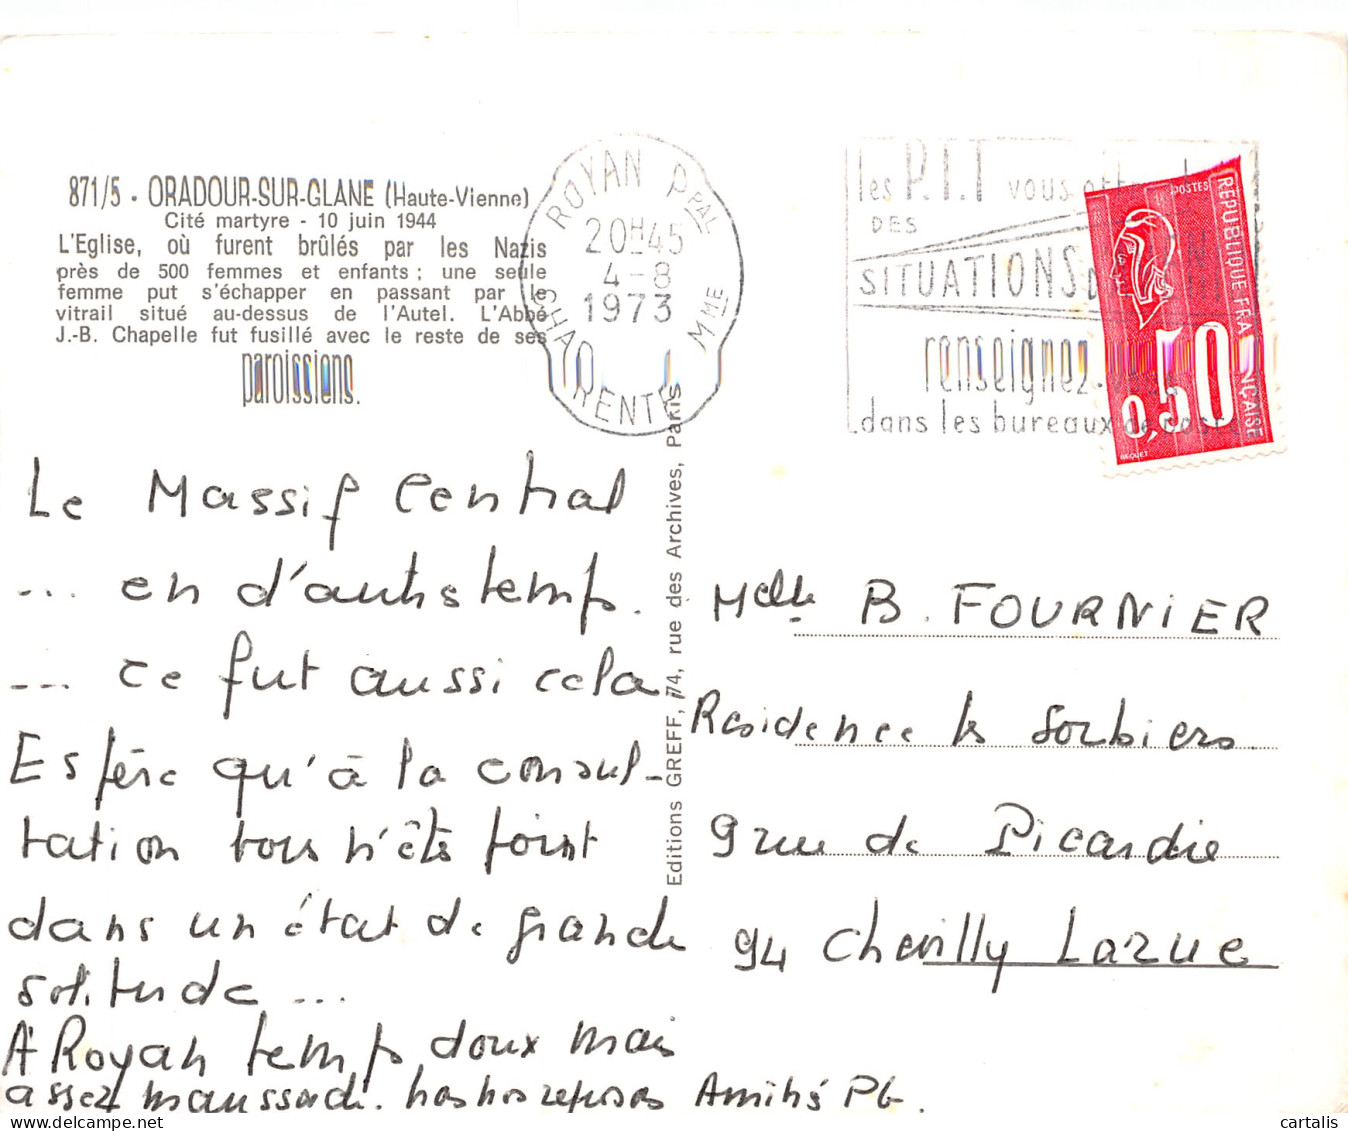 871/5 - ORADOUR-SUR-GLANE (Haute-Vienne)
Cité martyre - 10 juin 1944
L'Eglise, où furent brûlés par les Nazis
près de 500 femmes et enfants ; une seule
femme put s'échapper en passant par le
vitrail situé au-dessus de l'Autel. L'Abbé
J.-B. Chapelle fut fusillé avec le reste de ses
paroissiens.
ROYAN PPAL
20H45
4-8
1973
CHARENTE MME
les P.T.T vous
DES
SITUATIONS
renseignez.
dans les bureaux de poste
POSTES
REPUBLIQUE FRANÇAISE
0,50
BEQUET
Le Massif Central
... en d'autrs temps.
... ce fut aussi cela
Espère qu'à la consul-
tation vous n'êts point
dans un état de grande
solitude ...
A Royan temps doux mais
assez maussade. nos reposes Amitiés PG.
Editions GREFF, 74, rue des Archives, Paris
Melle B. FOURNIER
Residence les Sorbiers
9 rue de Picardie
94 Chevilly Larue
cartalis